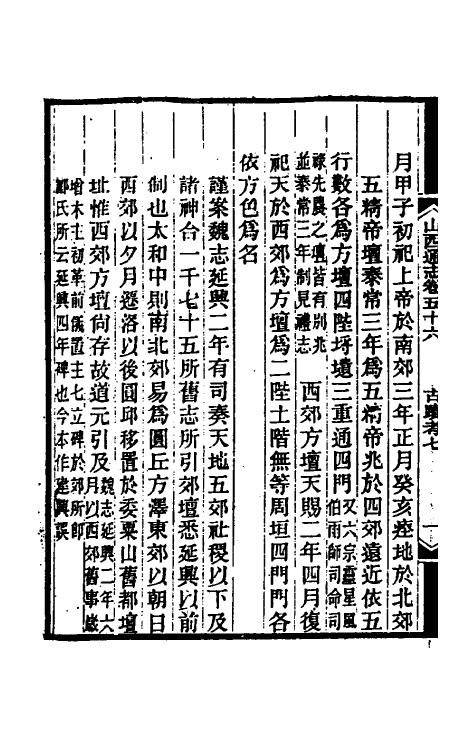 山西通志卷五十六　古蹟考七　一
月甲子初祀上帝於南郊三年正月癸亥瘞地於北郊
五精帝壇泰常三年爲五精帝兆於四郊遠近依五
行數各爲方壇四陛埒壝三重通四門又六宗靈星風伯雨師司命司
祿先農之壇皆有別兆並泰常三年制見禮志　西郊方壇天賜二年四月復
祀天於西郊爲方壇爲二陛土階無等周垣四門門各
依方色爲名
謹案魏志延興二年有司奏天地五郊社稷以下及
諸神合一千七十五所舊志所引郊壇悉延興以前
制也太和中則南北郊易爲圓丘方澤東郊以朝日
西郊以夕月遷洛以後圓邱移置於委粟山舊都壇
址惟西郊方壇尙存故道元引及魏志延興二年六月以西郊舊事歲
增木主初革前儀置主七立碑於郊所卽酈氏所云延興四年碑也今本作建興誤